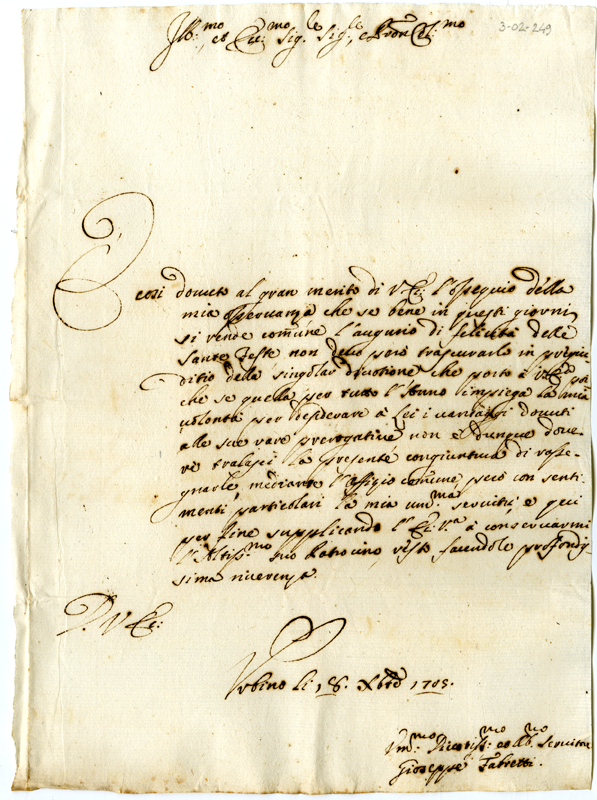 3-02-249
Ill:mo et Ecc:mo Sig:le Sig:le, e Pron Col:mo
E cosi dovuto al gran merito di V. Ecc: l'ossequio della
mia osservanza che se bene in questi giorni
si rende comune l'augurio di felicità delle
Sante Feste non devo però trascurarlo in pregiu-
ditio della singolar divotione che porto à
che se quella per tutto l'Anno impiega la mia
volontà per desiderare à Lei i vantaggi dovuti
alle sue rare prerogative non è dunque dove-
re tralasci la presente congiuntura di rasse-
gnarle, mediante l'offizio comune però con senti-
menti particolari la mia um:ma servitù, e qui
per fine supplicando l'Ecc: V.a à conservarmi
l'Altiss:mo suo Patrocinio, resto facendole profondis-
sima riverenza.
D. V. Ecc:
Urbino li 18. Xbre 1705.
Um:mo Divotiss:mo et Obb:mo Servitore
Gioseppe Fabretti.